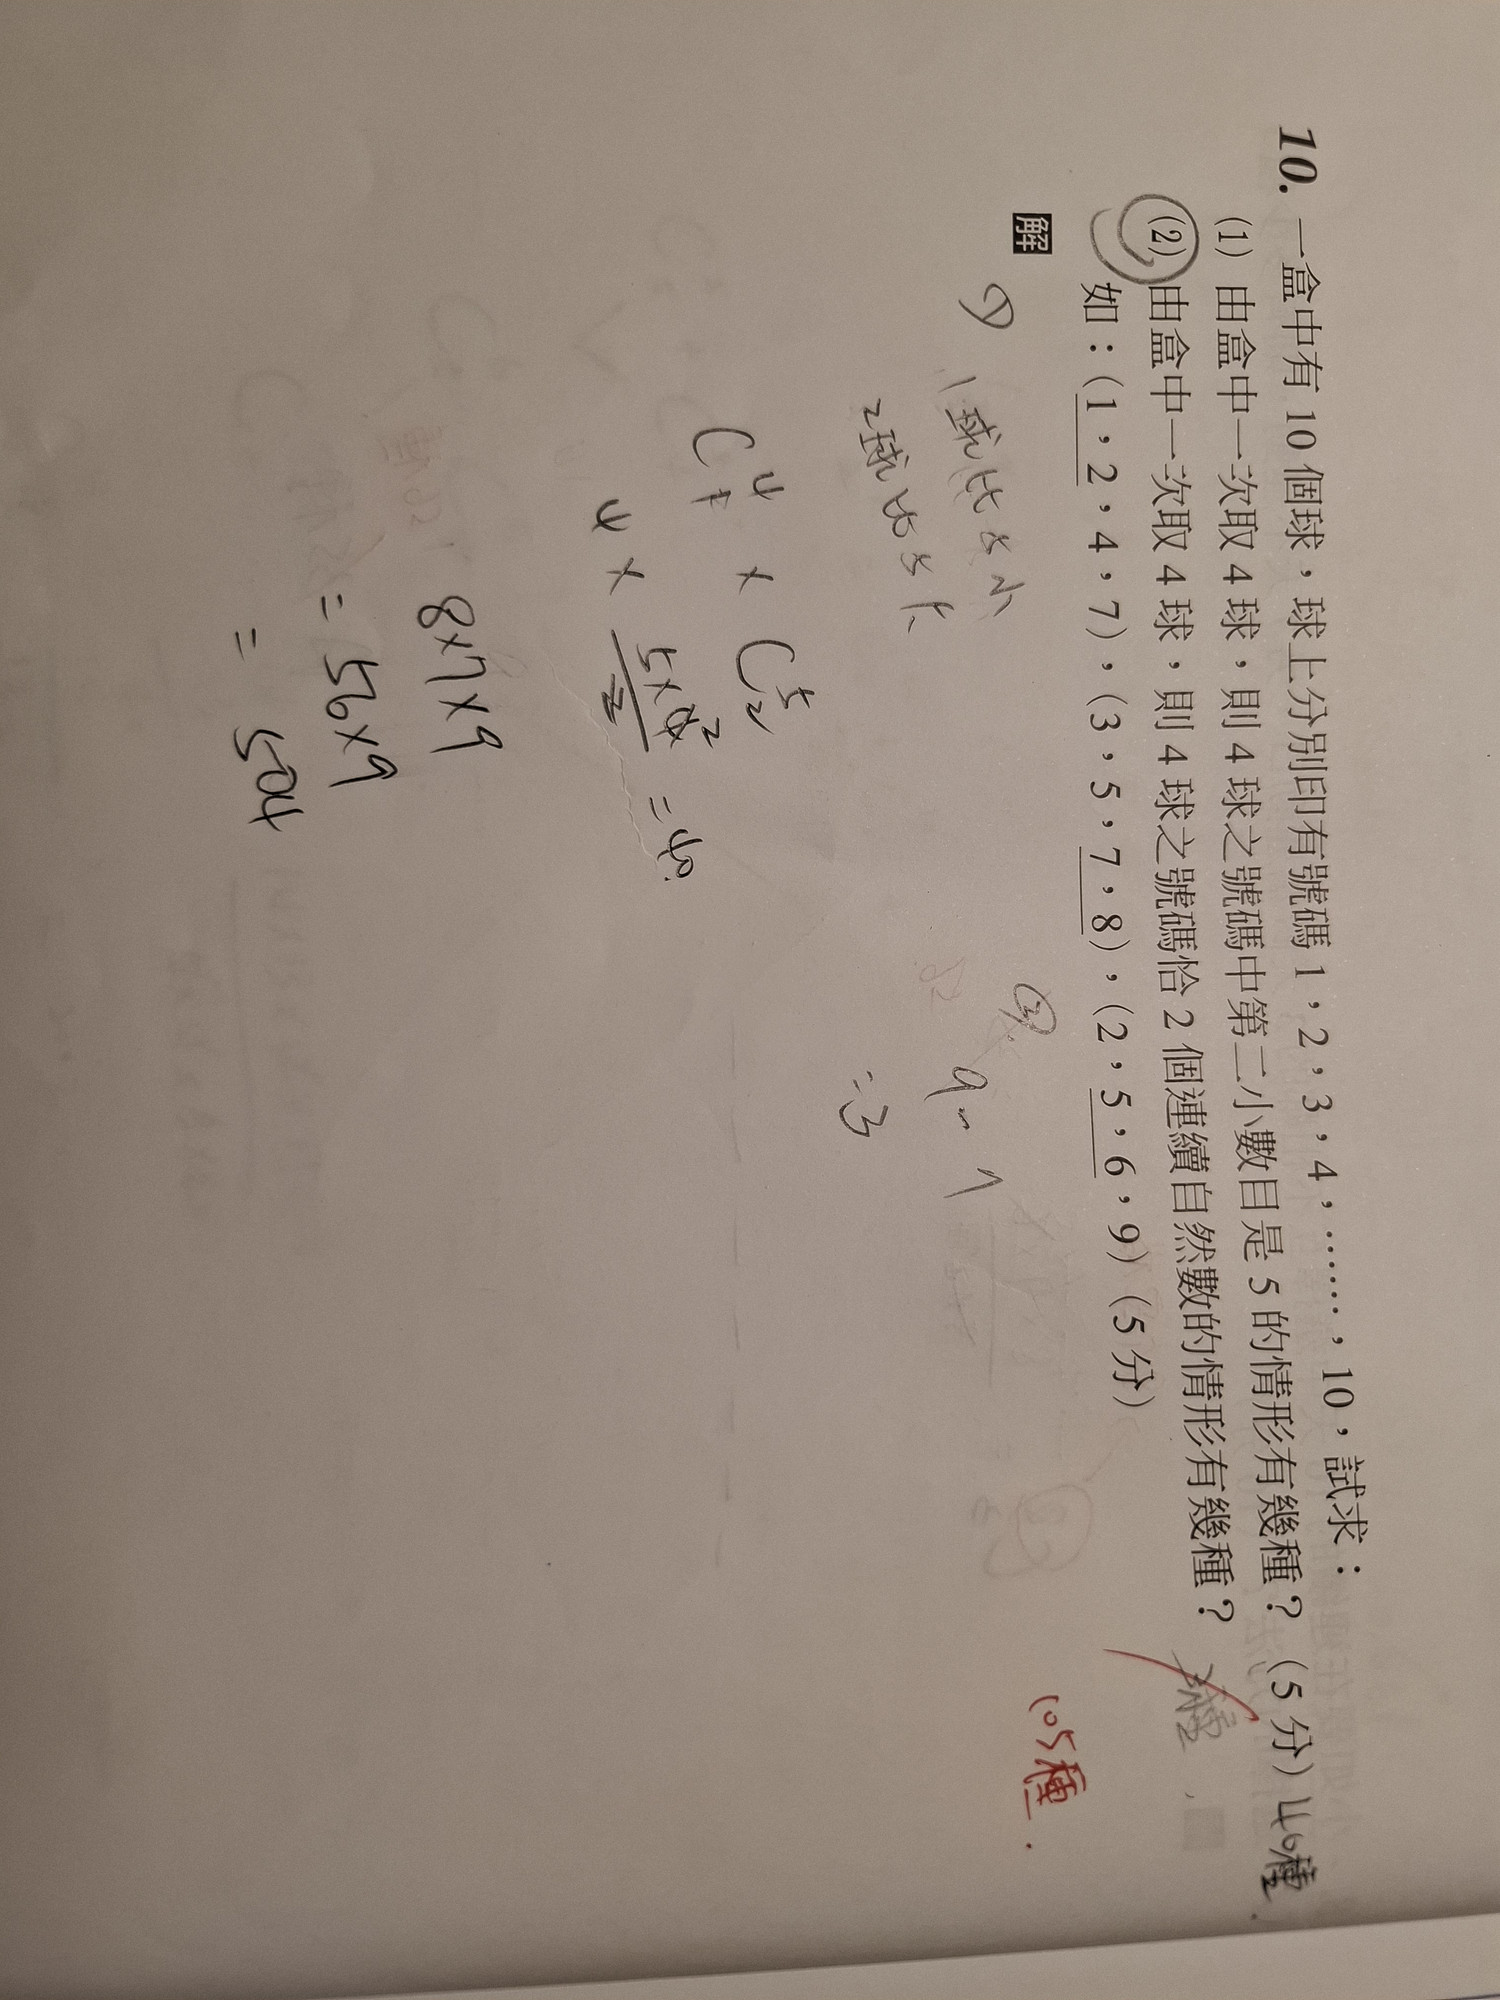 10. 一盒中有 10 個球，球上分別印有號碼 1，2，3，4，……，10，試求：
(1) 由盒中一次取 4 球，則 4 球之號碼中第二小數目是 5 的情形有幾種？（5 分）40種.
(2) 由盒中一次取 4 球，則 4 球之號碼恰 2 個連續自然數的情形有幾種？
如：(1，2，4，7)，(3，5，7，8)，(2，5，6，9)（5 分）
105種.
解
①
1球比5小
2球比5大
C × C
4 × 5×4 2 = 40
2
②
9-
=3
8×7×9
= 56×9
= 504